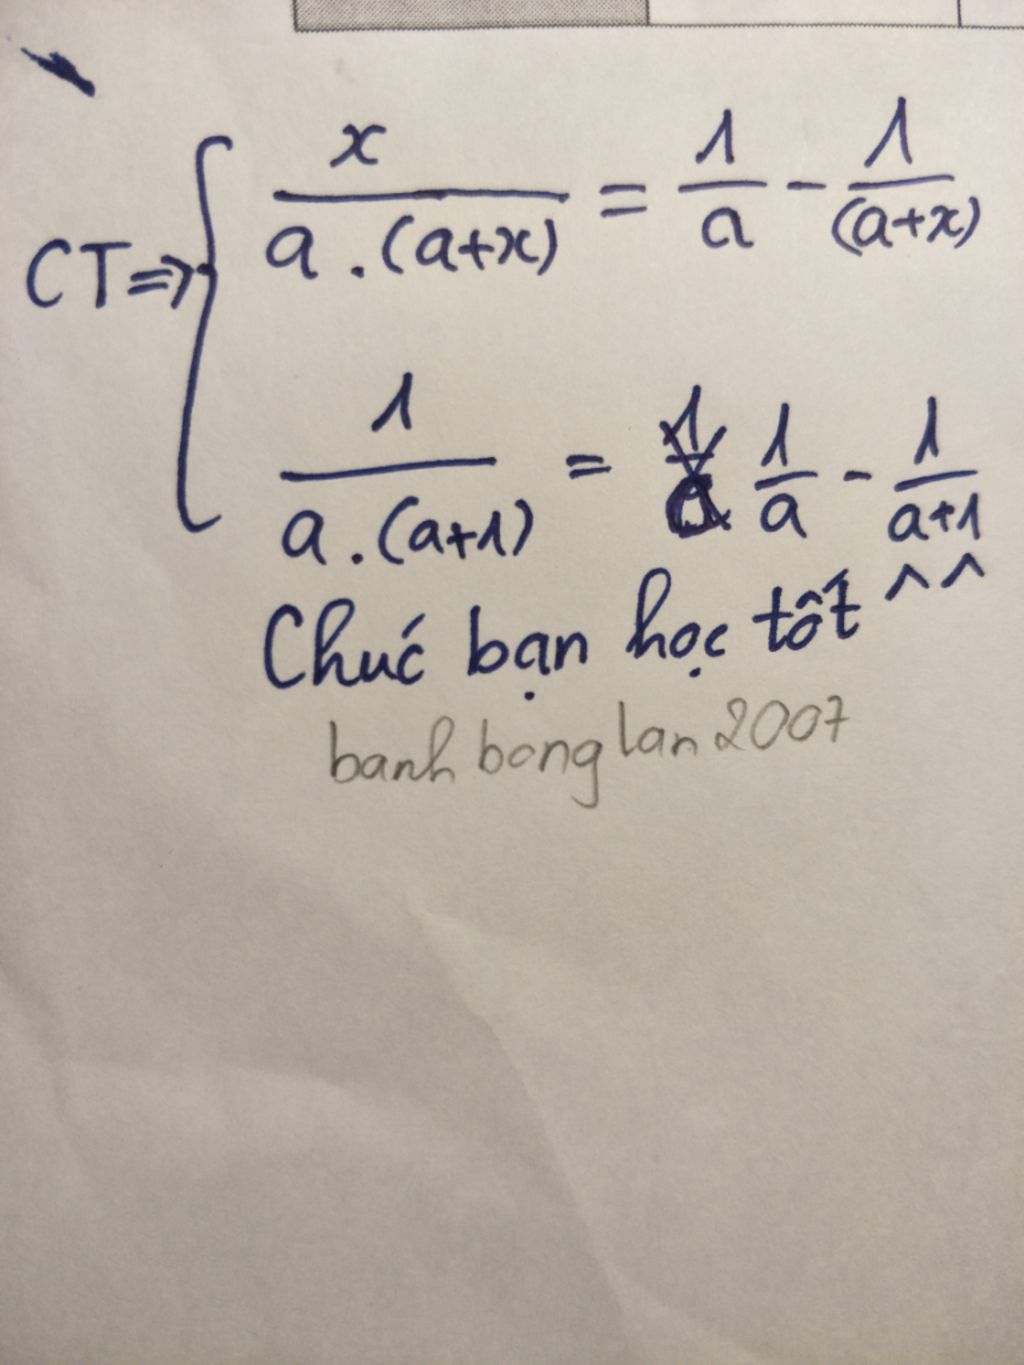 CT => { x / a . (a+x) = 1/a - 1/(a+x)
1 / a . (a+1) = 1/a - 1/a+1
Chúc bạn học tốt ^^
banh bong lan 2007